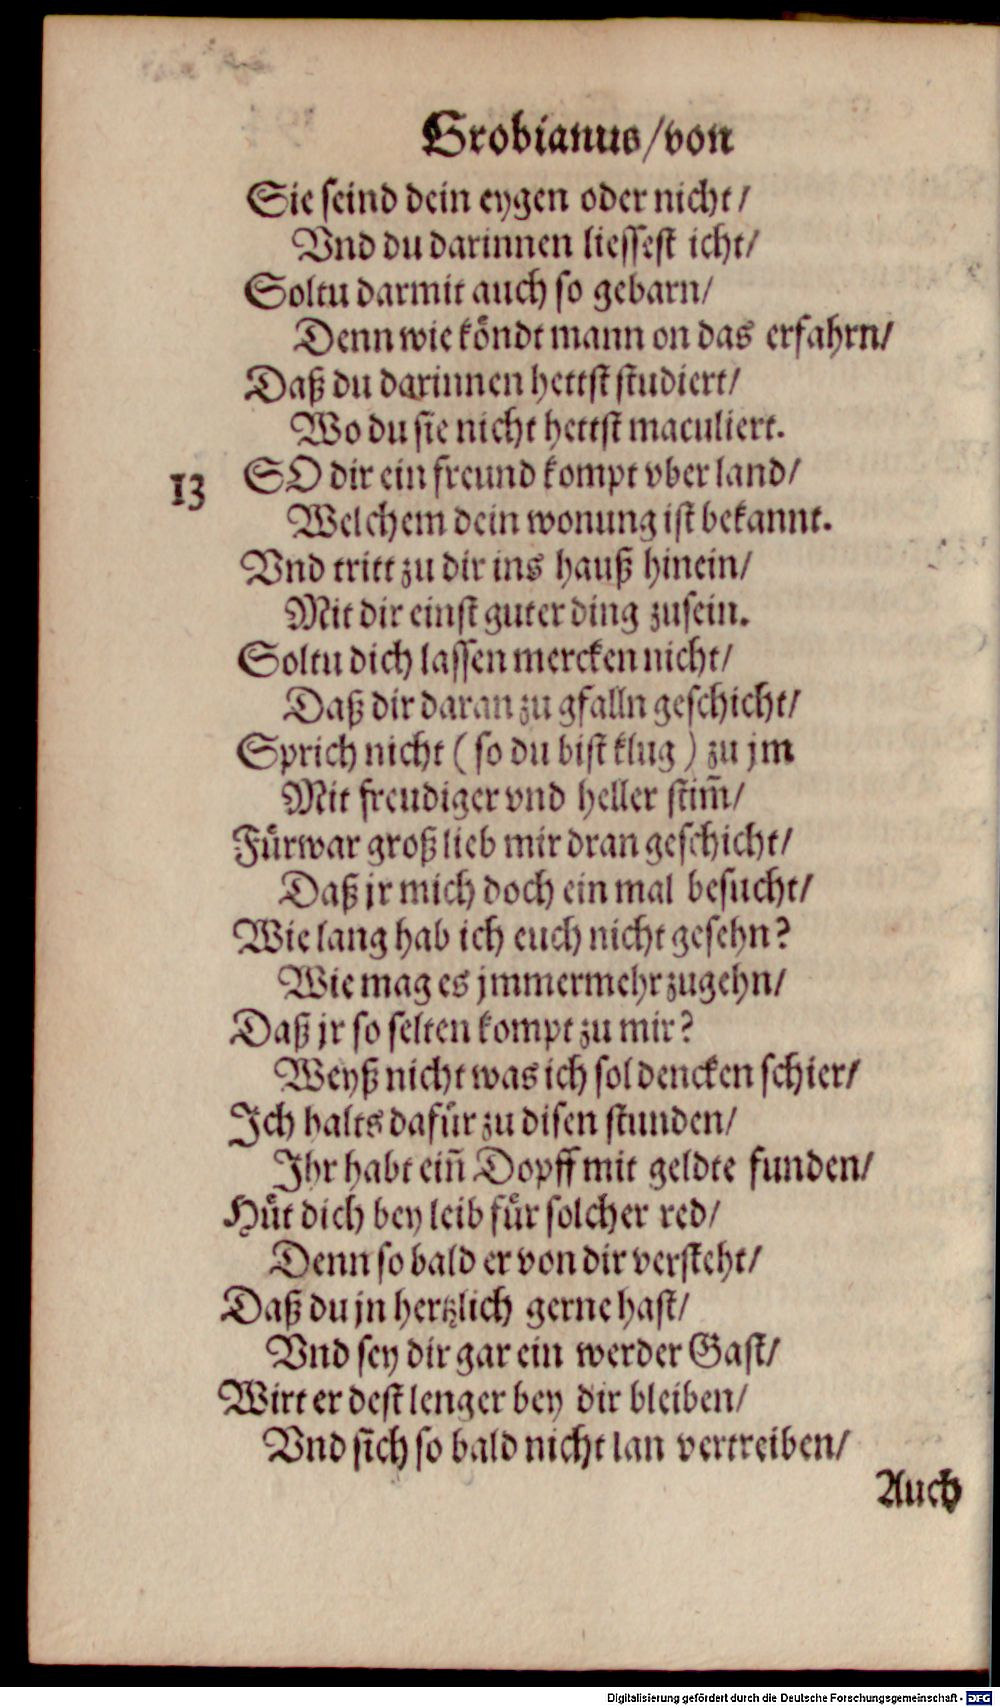 Grobianus/von
Sie seind dein eygen oder nicht/
Vnd du darinnen liessest icht/
Soltu darmit auch so gebarn/
Denn wie köndt mann on das erfahrn/
Daß du darinnen hettst studiert/
Wo du sie nicht hettst maculiert.
13 SO dir ein freund kompt vber land/
Welchem dein wonung ist bekannt.
Vnd tritt zu dir ins hauß hinein/
Mit dir einst guter ding zusein.
Soltu dich lassen mercken nicht/
Daß dir daran zu gfalln geschicht/
Sprich nicht (so du bist klug) zu jm
Mit freudiger vnd heller stim̃/
Fürwar groß lieb mir dran geschicht/
Daß jr mich doch ein mal besucht/
Wie lang hab ich euch nicht gesehn?
Wie mag es jmmermehr zugehn/
Daß jr so selten kompt zu mir?
Weyß nicht was ich sol dencken schier/
Ich halts dafür zu disen stunden/
Ihr habt eiñ Dopff mit geldte funden/
Hüt dich bey leib für solcher red/
Denn so bald er von dir versteht/
Daß du jn hertzlich gerne hast/
Vnd sey dir gar ein werder Gast/
Wirt er dest lenger bey dir bleiben/
Vnd sich so bald nicht lan vertreiben/
Auch
Digitalisierung gefördert durch die Deutsche Forschungsgemeinschaft - DFG